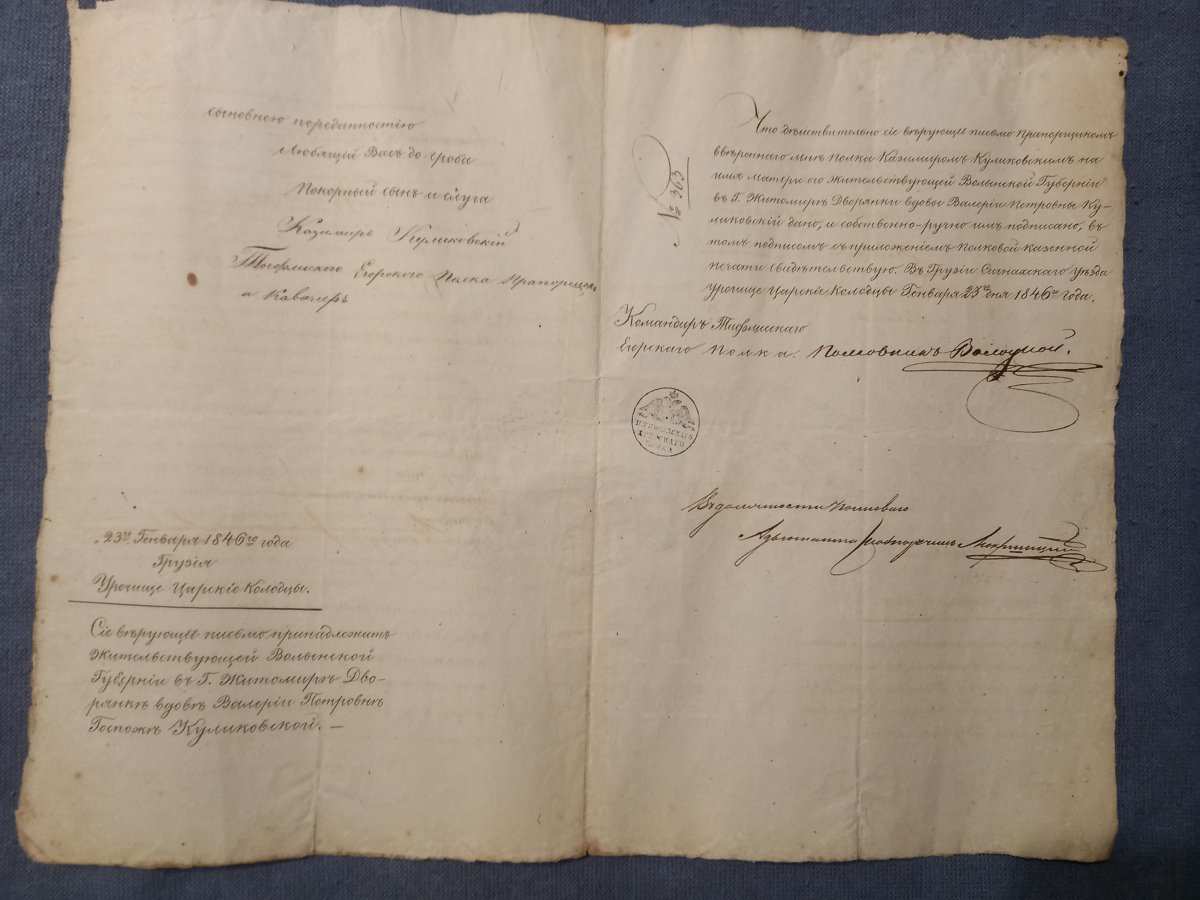 сыновнею переданностію
Любящій Васъ до гроба
Покорный сынъ и слуга
Казимиръ Куликовскій
Тифлискаго Егерского Полка Прапорщикъ
и Кавалеръ
23го Генваря 1846го года
Грузія
Урочище Царскіе Колодцы.
Сіе вѣрующее письмо принадлежитъ
Жительствующей Волынской
Губерніи въ Г. Житомирѣ Дво-
рянкѣ вдовѣ Валеріи Петровнѣ
Госпожѣ Куликовской. —
№ 363
Что дѣйствительно сіе вѣрующее письмо Прапорщикомъ
ввѣреннаго мнѣ Полка Казимиромъ Куликовскимъ на
имя матери его Жительствующей Волынской Губерніи
въ Г. Житомирѣ Дворянки вдовы Валеріи Петровны Ку-
ликовскій дано, и собственно-ручно имъ подписано, въ
томъ подписомъ съ приложеніемъ Полковой казенной
печати свидѣтельствую. Въ Грузіи Сигнахскаго уѣзда
урочище Царскіе Колодцы Генваря 23го дня 1846го года.
Командиръ Тифлисскаго
Егерскаго Полка. Полковникъ
Въ должности Полковаго
Адъютанта